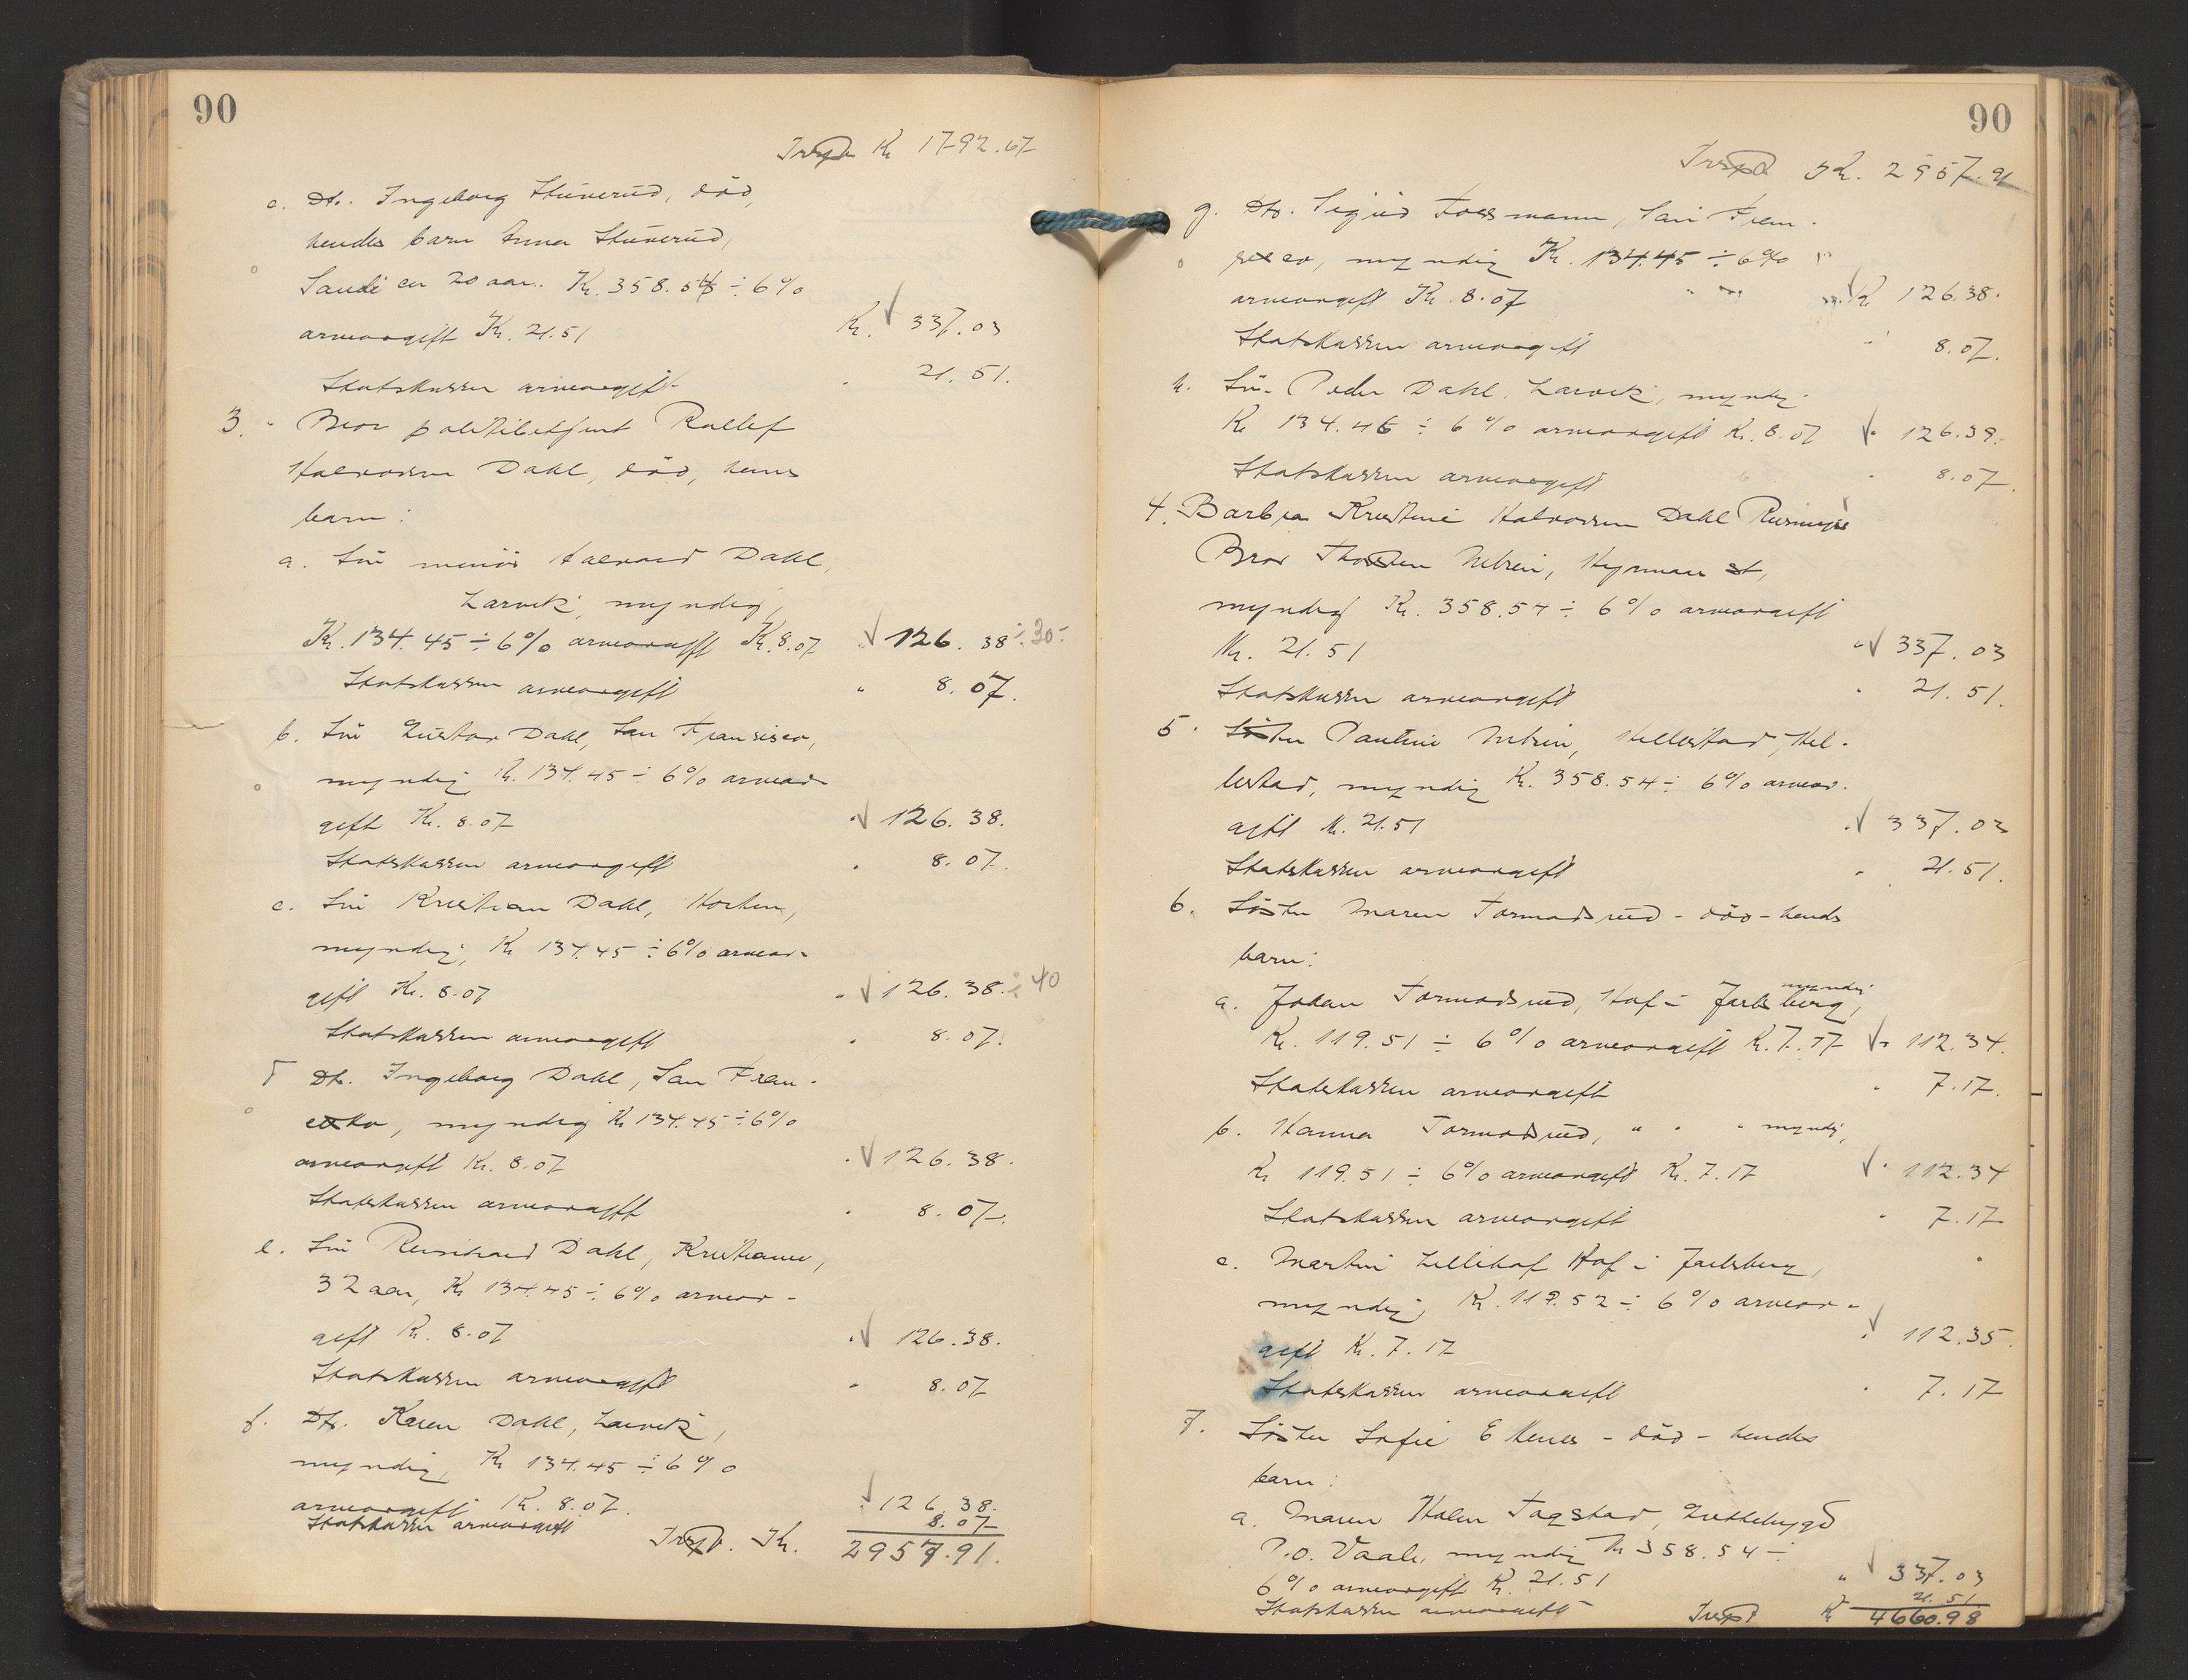 90
Trspt Kr 1792.67
c. Dtr. Ingeborg Stuverud, död,
hendes barn Anna Stuverud,
Sande er 20 aar. Kr. 358.54 ÷ 6%
arveavgift Kr. 21.51 Kr. 337.03
Statskassen arveavgift 21.51.
3. Bror politibetjent Rollef
Halvorsen Dahl, död, hans
barn:
a. Sön Halvard Dahl,
Larvik, myndig,
Kr. 134.45 ÷ 6% arveavgift Kr. 8.07 126.38 ÷ 30-
Statskassen arveavgift " 8.07.
b. Sön Gustav Dahl, San Fransisco,
myndig Kr. 134.45 ÷ 6% arveav-
gift Kr. 8.07 " 126.38.
Statskassen arveavgift " 8.07.
c. Sön Kristian Dahl, Horten,
myndig, Kr 134.45 ÷ 6% arveav-
gift Kr. 8.07 " 126.38. ÷ 40
Statskassen arveavgift " 8.07.
Dtr. Ingeborg Dahl, San Fran-
cisko, myndig Kr 134.45 ÷ 6%
arveavgift Kr. 8.07 " 126.38.
Statskassen arveavgift " 8.07.
e. Sön Reinhard Dahl, Kristiania,
32 aar, Kr 134.45 ÷ 6% arveav-
gift Kr. 8.07 " 126.38.
Statskassen arveavgift " 8.07
f. Dtr. Karen Dahl, Larvik,
myndig, Kr 134.45 ÷ 6%
arveavgift Kr. 8.07. " 126.38.
Statskassen arveavgift 8.07
Trspt. Kr. 2957.91.
90
Trspt Kr. 2957.91
g. Dtr. Sigrid Fossmann, San Fran-
sisco, myndig Kr. 134.45 ÷ 6%
arveavgift Kr. 8.07 Kr 126.38.
Statskassen arveavgift " 8.07.
h. Sön Peder Dahl, Larvik, myndig
Kr 134.46 ÷ 6% arveavgift Kr. 8.07 " 126.39.
Statskassen arveavgift " 8.07.
4. Barbra Kristine Halvorsen Dahl
Bror Thorsten Nebein,
myndig Kr. 358.54 ÷ 6% arveavgift
Kr. 21.51 " 337.03
Statskassen arveavgift " 21.51.
5. Söster Pauline Hillestad, Hil-
lestad, myndig Kr. 358.54 ÷ 6% arveav-
gift Kr. 21.51 " 337.03
Statskassen arveavgift " 21.51.
6. Söster Maren Tormodsrud - död - hends
barn:
a. Johan Tormodsrud, Hof i Jarlsberg, myndig
Kr. 119.51 ÷ 6% arveavgift Kr. 7.17 " 112.34.
Statskassen arveavgift " 7.17.
b. Hanna Tormodsrud, " " " myndig,
Kr 119.51 ÷ 6% arveavgift Kr. 7.17 " 112.34
Statskassen arveavgift " 7.17
c. Martin Lillehof Hof i Jarlsberg,
myndig, Kr. 119.52 ÷ 6% arveav-
gift Kr. 7.17 " 112.35.
Statskassen arveavgift " 7.17
7. Söster Sofie Ekenes - död - hendes
barn:
a. Maren Holm Fogstad,
P.O. Vaale, myndig Kr 358.54 ÷
6% arveavgift Kr. 21.51 " 337.03
Statskassen arveavgift 21.51
Trspt Kr 4660.98